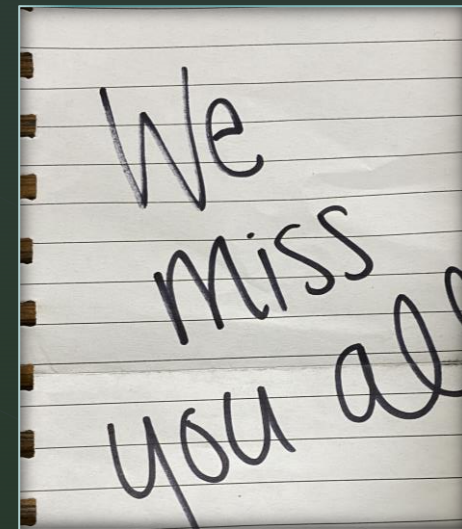 We
miss
you all